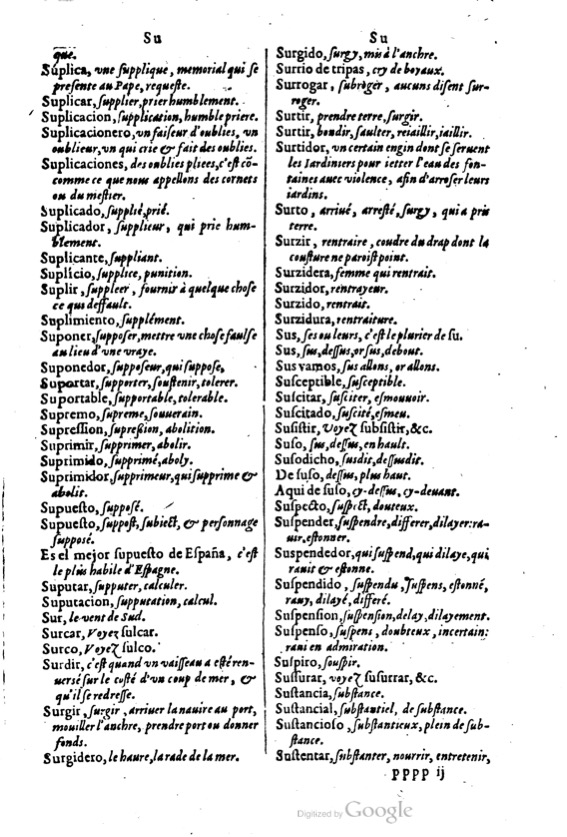 Su
que.
Súplica, vne ſupplique, memorial qui ſe
preſente au Pape, requeſte.
Suplicar, ſupplier, prier humblement.
Suplicacion, ſupplication, humble priere.
Suplicacionero, vn faiſeur d'oublies, vn
oublieur, vn qui crie & fait des oublies.
Suplicaciones, des oublies pliees, c'eſt cō-
comme ce que nous appellons des cornets
ou du meſtier.
Suplicado, ſupplié, prié.
Suplicador, ſupplieur, qui prie hum-
blement.
Suplicante, ſuppliant.
Suplicio, ſupplice, punition.
Suplir, ſuppleer, fournir à quelque choſe
ce qui deffault.
Suplimiento, ſupplément.
Suponer, ſuppoſer, mettre vne choſe faulſe
au lieu d'vne vraye.
Suponedor, ſuppoſeur, qui ſuppoſe,
Suportar, ſupporter, ſouſtenir, tolerer.
Suportable, ſupportable, tolerable.
Supremo, ſupreme, ſouuerain.
Supreſſion, ſupreßion, abolition.
Suprimir, ſupprimer, abolir.
Suprimido, ſupprimé, aboly.
Suprimidor, ſupprimeur, qui ſupprime &
abolit.
Supueſto, ſuppoſé.
Supueſto, ſuppoſt, ſubiect, & perſonnage
ſuppoſé.
Es el mejor supueſto de Eſpaña, c'eſt
le plus habile d'Eſpagne.
Suputar, ſupputer, calculer.
Suputacion, ſupputation, calcul.
Sur, le vent de Sud.
Surcar, Voyez ſulcar.
Surco, Voyez ſulco.
Surdir, c'eſt quand vn vaiſſeau a eſté ren-
uerſé ſur le coſté d'vn coup de mer, &
qu'il ſe redreſſe.
Surgir, ſurgir, arriuer la nauire au port,
mouiller l'anchre, prendre port ou donner
fonds.
Surgidero, le haure, la rade de la mer.
Su
Surgido, ſurgy, mis à l'anchre.
Surrio de tripas, cry de boyaux.
Surrogar, ſubroger, aucuns diſent ſur-
roger.
Surtir, prendre terre, ſurgir.
Surtir, bondir, ſaulter, reiaillir, iaillir.
Surtidor, vn certain engin dont ſe ſeruent
les Iardiniers pour ietter l'eau des fon-
taines auec violence, afin d'arroſer leurs
iardins.
Surto, arriué, arreſté, ſurgy, qui a pris
terre.
Surzir, rentraire, coudre du drap dont la
couſture ne paroiſt point.
Surzidera, femme qui rentrait.
Surzidor, rentrayeur.
Surzido, rentrait.
Surzidura, rentraiture.
Sus, ſes ou leurs, c'eſt le plurier de ſu.
Sus, ſus, deſſus, or ſus, debout.
Sus vamos, ſus allons, or allons.
Suſceptible, ſuſceptible.
Suſcitar, ſuſciter, eſmouuoir.
Suſcitado, ſuſcité, eſmeu.
Suſiſtir, Voyez ſubſiſtir, &c.
Suſo, ſus, deſſus, en hault.
Suſodicho, ſuſdit, deſſuſdit.
De ſuſo, deſſus, plus haut.
Aqui de ſuſo, cy-deſſus, cy-deuant.
Suſpecto, ſuſpect, douteux.
Suſpender, ſuſpendre, differer, dilayer: ra-
uir, eſtonner.
Suſpendedor, qui ſuſpend, qui dilaye, qui
rauit & eſtonne.
Suſpendido, ſuſpendu, ſuſpens, eſtonné,
rauy, dilayé, differé.
Suſpenſion, ſuſpenſion, delay, dilayement.
Suſpenſo, ſuſpens, doubteux, incertain:
raui en admiration.
Suſpiro, ſouſpir.
Suſſurar, voyez ſuſurrar, &c.
Suſtancia, ſubſtance.
Suſtancial, ſubſtantiel, de ſubſtance.
Suſtancioſo, ſubſtantieux, plein de ſub-
ſtance.
Suſtentar, ſubſtanter, nourrir, entretenir,
PPPP ij
Digitized by Google